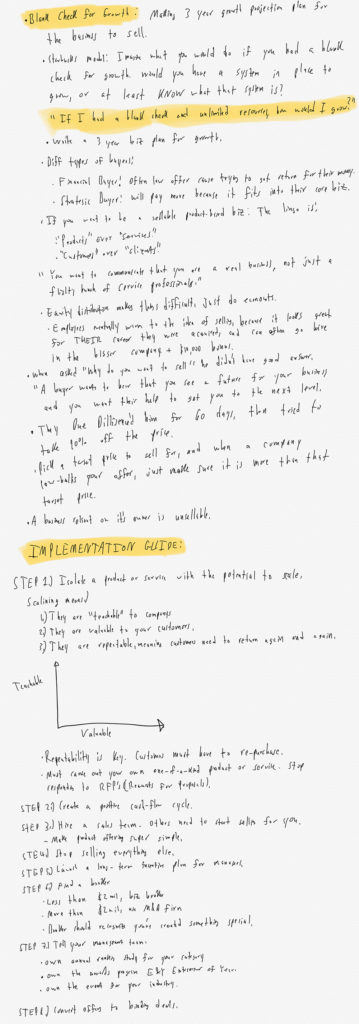 • Blank Check for Growth: Making 3 year growth projection plan for
the business to sell.
• Starbucks model: Imagine what you would do if you had a blank
check for growth would you have a system in place to
grow, or at least KNOW what that system is?
"If I had a blank check and unlimited resources, how would I grow?"
• Write a 3 year biz plan for growth.
• Diff types of buyers:
• Financial Buyer: Often low offer cause trying to get return for their money.
• Strategic Buyer: will pay more because it fits into their core biz.
• If you want to be a sellable product-based biz: The lingo is:
• "Products" over "services"
• "Customers" over "clients"
"You want to communicate that you are a real business, not just a
flighty bunk of service professionals."
• Equity distribution makes things difficult. Just do
• Employees mentally warm to the idea of selling, because it looks great
for THEIR career they were acquired, and can often go
in the bigger company + $10,000 bonus.
• When asked "Why do you want to sell" he didn't have good answer.
"A buyer wants to hear that you see a future for your business
and you want their help to get you to the next level.
• They Due Dilligence'd him for 60 days, then tried to
take off the price.
• Pick a target price to sell for, and when a company
low-balls your offer, just make sure it is more than that
target price.
• A business reliant on it's owner is unsellable.
IMPLEMENTATION GUIDE:
STEP 1.) Isolate a product or service with the potential to scale.
Scalining means)
1) They are "teachable" to
2) They are valuable to your customers.
3) They are repeatable, meaning customers need to return again and again.
Teachable
Valuable
• Repeatability is key. Customers must have to re-purchase.
• Must carve out your own one-of-a-kind product or service. Stop
responding to RFP's (Requests for Proposals).
STEP 2:) Create a positive cash-flow cycle.
STEP 3:) Hire a sales team. Others need to start selling for you.
- Make product offering super simple.
STEP 4) Stop selling everything else.
STEP 5:) Launch a long-term incentive plan for managers.
STEP 6) Find a broker
• Less than $2mil, biz broker
• More than $2mil, use M&A firm
• Broker should recognize you've created something special.
STEP 7:) Tell your management team.
• own annual study for your category
• own the awards program E&Y Entrepreneur of Year.
• own the event for your industry.
STEP 8.) Convert offers to binding deals.